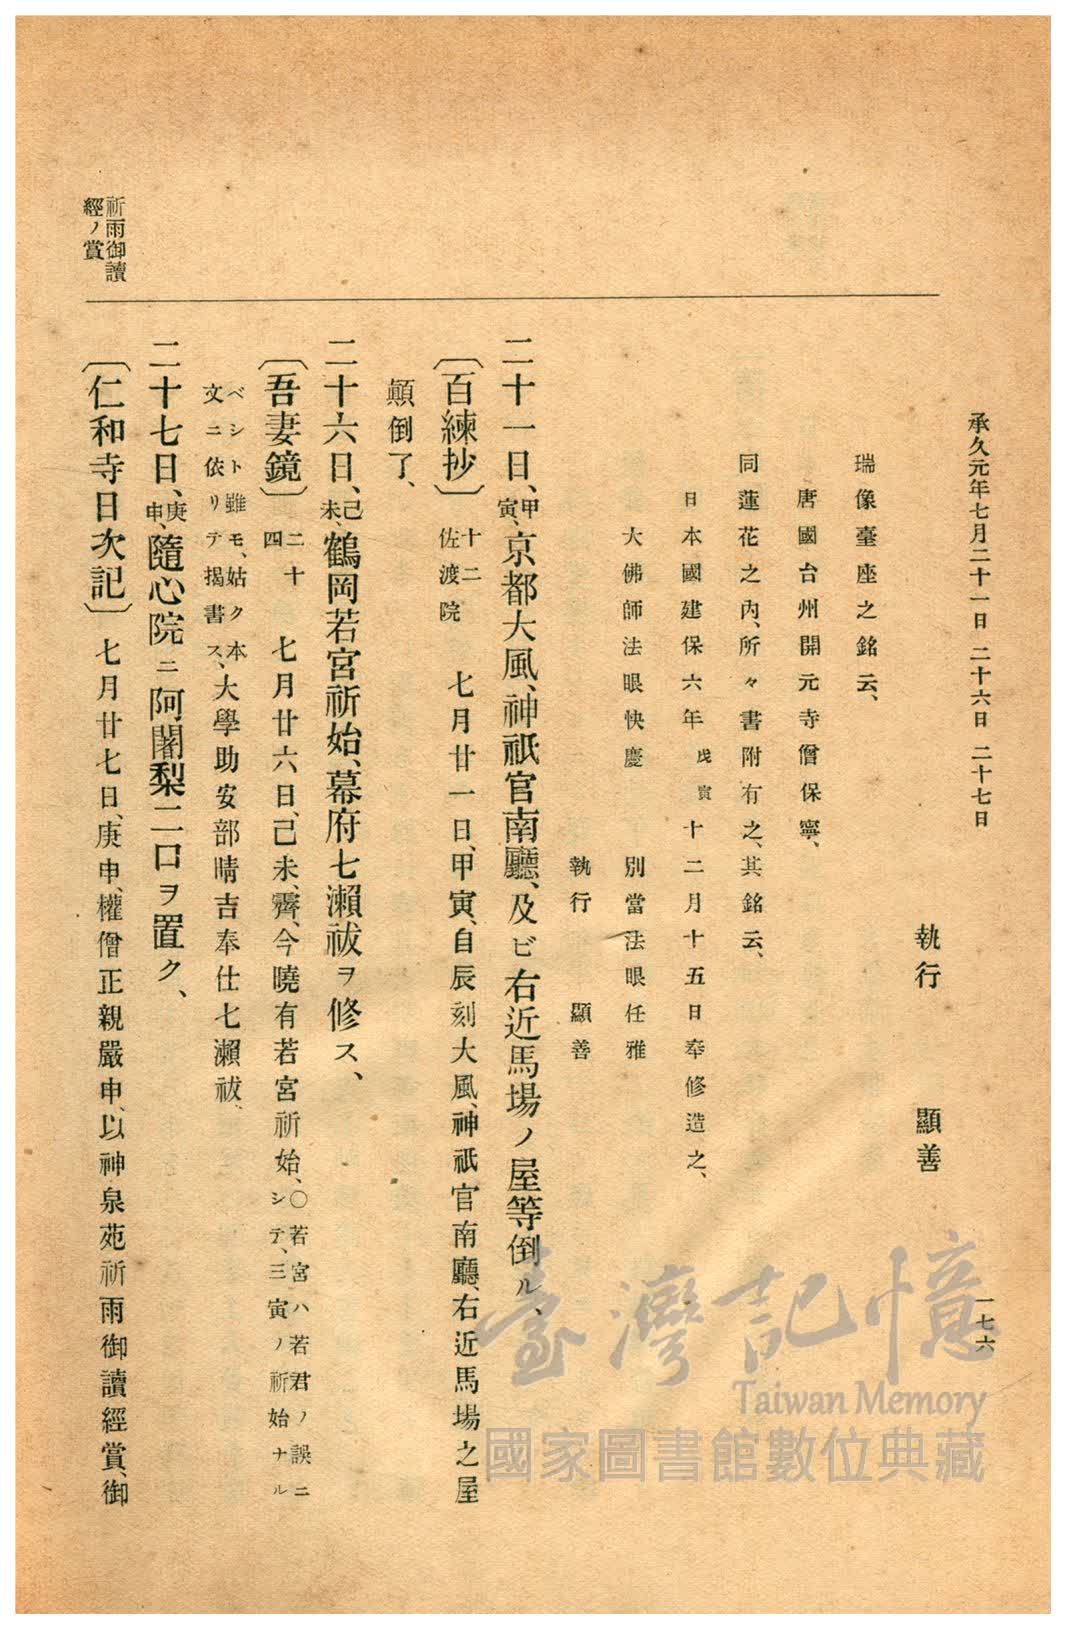 承久元年七月二十一日 二十六日 二十七日
一七六
執行 顯善
瑞像臺座之銘云、
唐國台州開元寺僧保寧、
同蓮花之內、所々書附有之、其銘云、
日本國建保六年戊寅十二月十五日奉修造之、
大佛師法眼快慶 別當法眼任雅
執行 顯善
二十一日、甲寅、京都大風、神祇官南廳、及ビ右近馬場ノ屋等倒ル、
〔百練抄〕十二佐渡院 七月廿一日、甲寅、自辰刻大風、神祇官南廳、右近馬場之屋
顚倒了、
二十六日、己未、鶴岡若宮祈始、幕府七瀨祓ヲ修ス、
〔吾妻鏡〕二十四 七月廿六日、己未、霽、今曉有若宮祈始、〇若宮ハ若君ノ誤ニシテ、三寅ノ祈始ナル
ベシト雖モ、姑ク本文ニ依リテ揭書ス、大學助安部晴吉奉仕七瀨祓、
二十七日、庚申、隨心院ニ阿闍梨二口ヲ置ク、
祈雨御讀
經ノ賞
〔仁和寺日次記〕七月廿七日、庚申、權僧正親嚴申、以神泉苑祈雨御讀經賞、御
臺灣記憶
Taiwan Memory
國家圖書館數位典藏